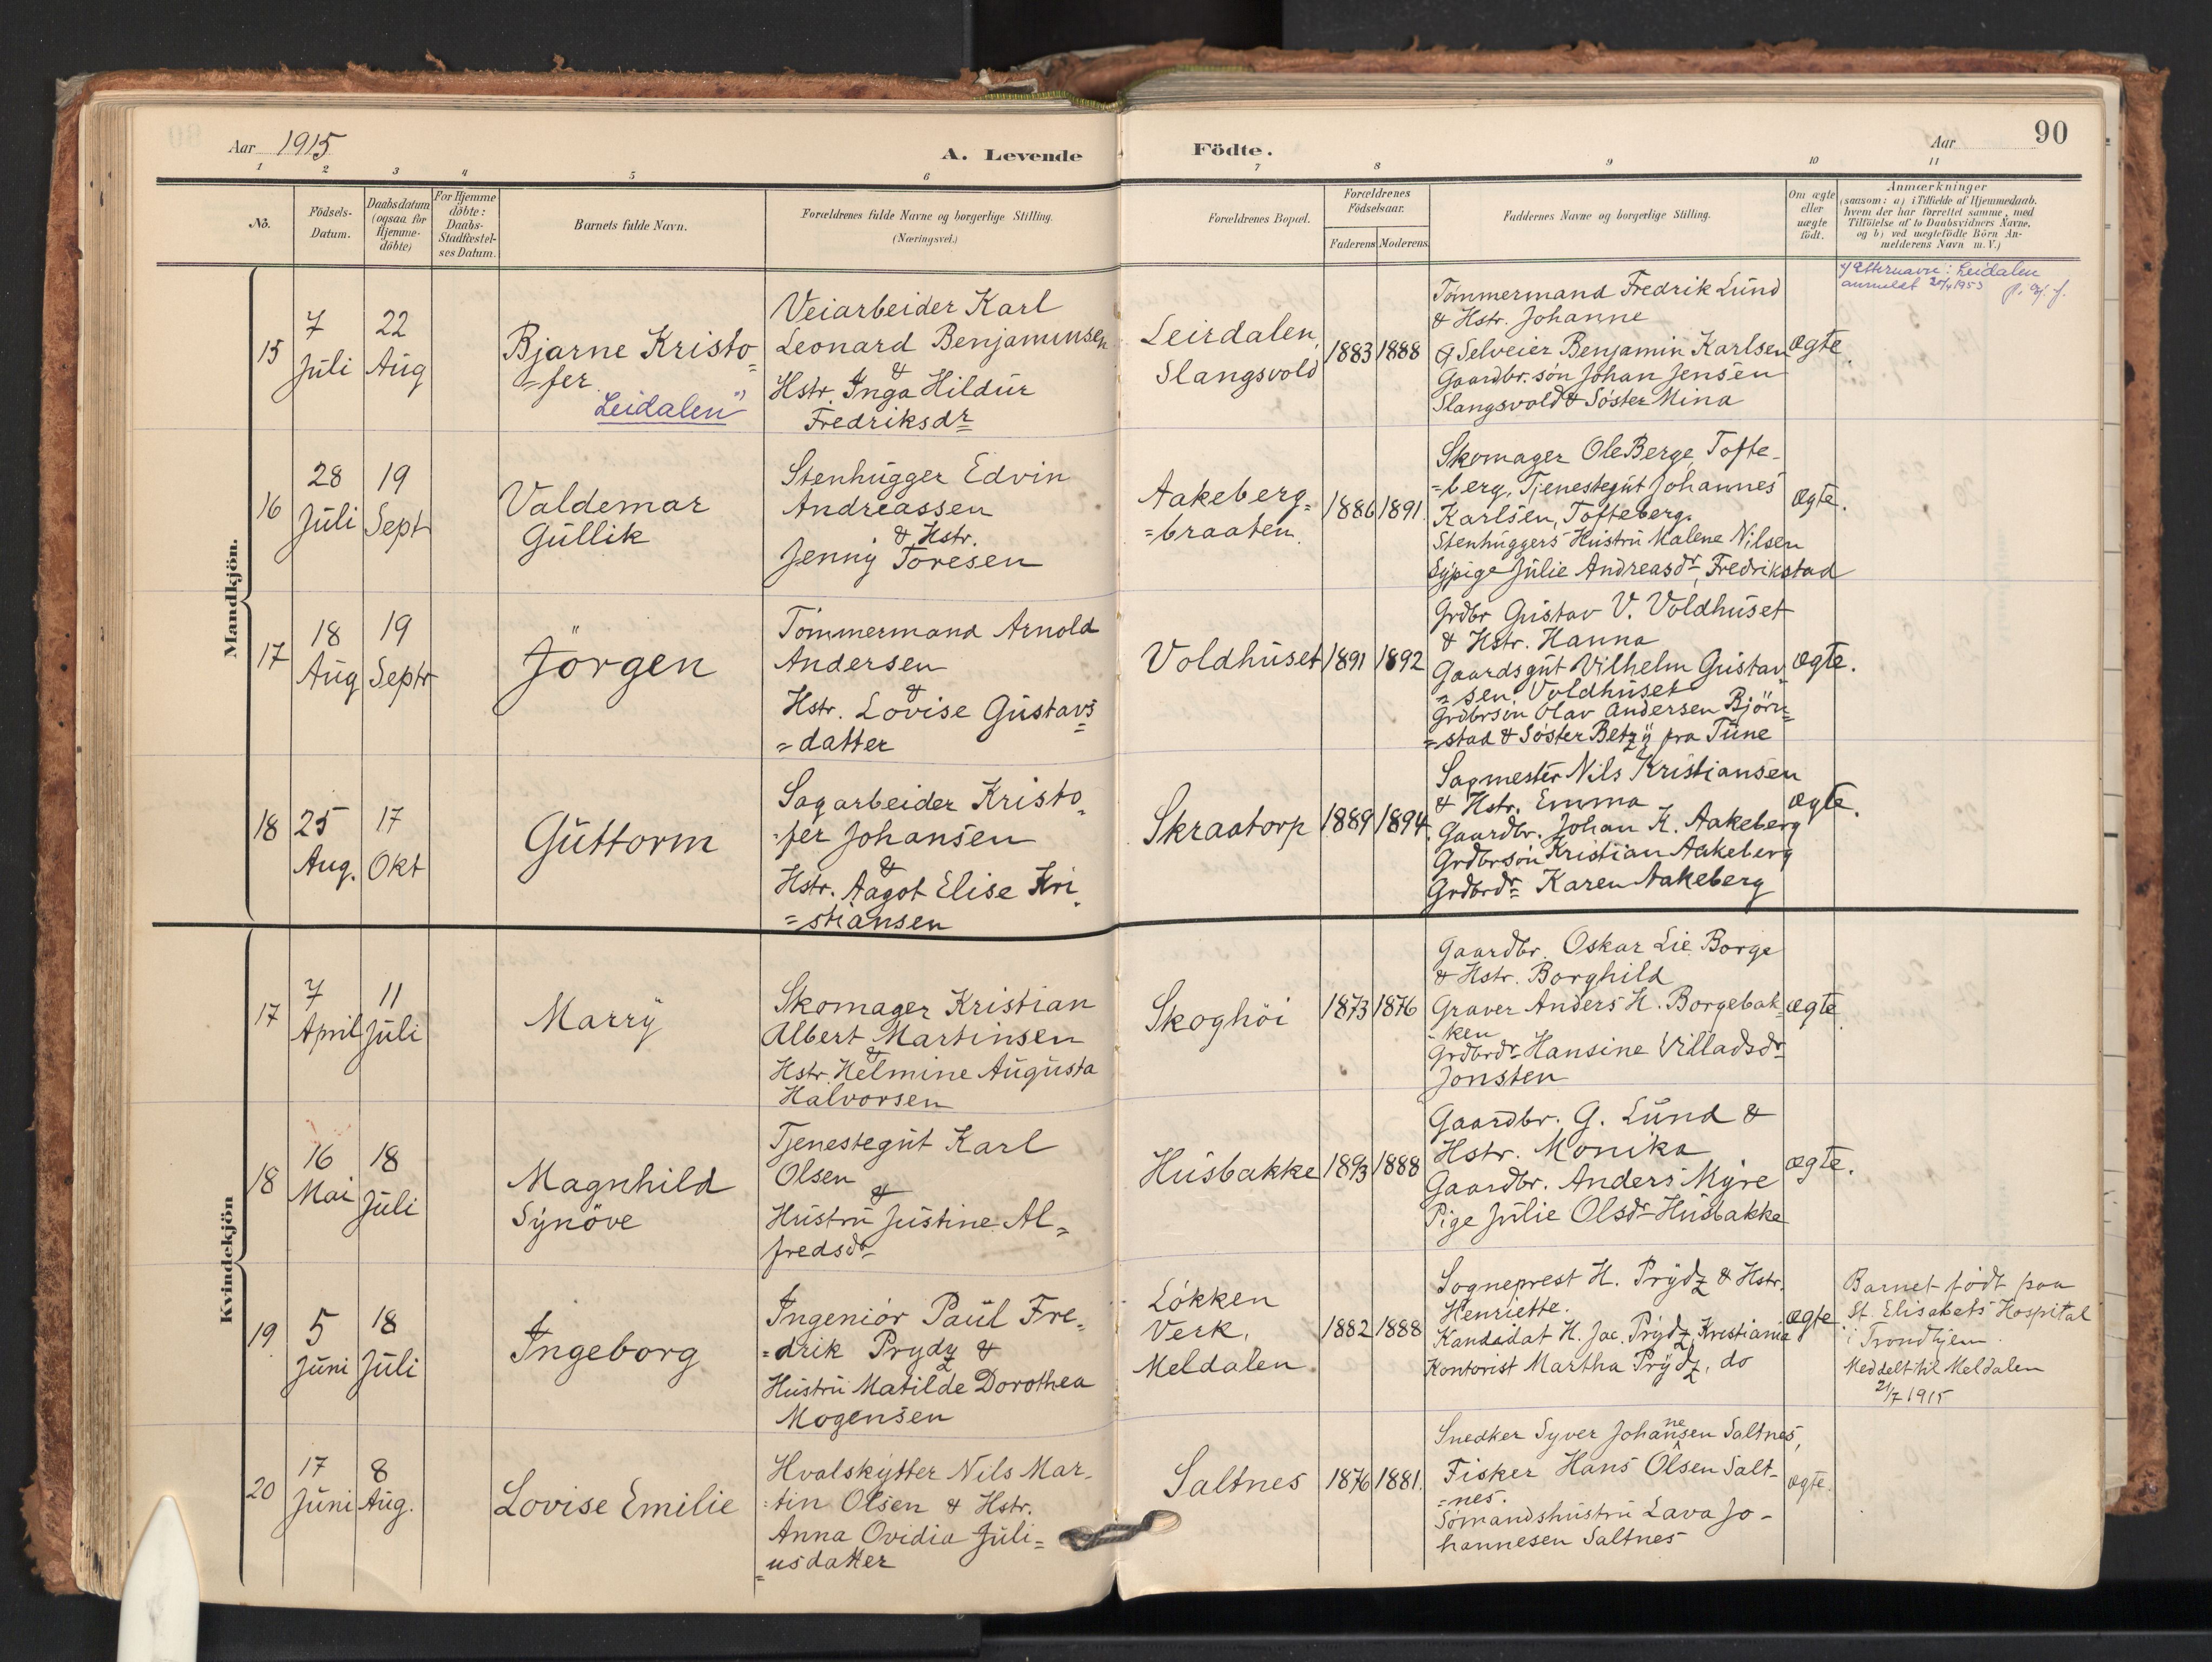 Aar 1915
A. Levende
Födte.
Aar
90
1 2 3 4 5 6 7 8 9 10 11
No.
Födsels-
Datum.
Daabsdatum
(ogsaa for
Hjemme-
döbte)
For Hjemme
döbte:
Daabs-
Stadfæstel-
ses Datum.
Barnets fulde Navn.
Forældrenes fulde Navne og borgerlige Stilling.
(Næringsvei.)
Forældrenes Bopæl.
Forældrenes
Födselsaar.
Faderens Moderens
Faddernes Navne og borgerlige Stilling.
Om ægte
eller
uægte
födt.
Anmærkninger
(saasom: a) i Tilfælde af Hjemmedaab,
hvem der har forrettet samme, med
Tilföielse af to Daabsvidners Navne,
og b) ved uægtefödte Börn An-
melderens Navn m. V.)
Mandkjön.
15
7
Juli
22
Aug
Bjarne Kristo
=fer
Leidalen
Veiarbeider Karl
Leonard Benjaminsen
&
Hstr. Inga Hildur
Fredriksdr
Leirdalen,
Slangsvold
1883 1888
Tömmermand Fredrik Lund
& Hstr. Johanne
Selveier Benjamin Karlsen
Gaardbr. sön Johan Jensen
Slangsvold & Söster Mina
ægte.
Etternavn: Leidalen
anmeldt 1953
16
28
Juli
19
Sept
Valdemar
Gullik
Stenhugger Edvin
Andreassen
& Hstr.
Jenny Toresen
Aakeberg=
=braaten.
1886 1891
Skomager Ole Berge, Tofte-
=berg, Tjenestegut Johannes
Karlsen, Tofteberg.
Stenhuggers Hustru Malene Nilsen
Sypige Julie Andreasdr, Fredrikstad
ægte.
17
18
Aug
19
Septr
Jörgen
Tömmermand Arnold
Andersen
&
Hstr. Lovise Gustavs
=datter
Voldhuset
1891 1892
Grdbr Gustav V. Voldhuset
& Hstr. Hanna
Gaardsgut Vilhelm Gustav
=sen Voldhuset
Grdbrsön Olav Andersen Björn=
=stad & Söster Betzy fra Tune
ægte.
18
25
Aug.
17
Okt
Guttorm
Sagarbeider Kristo=
=fer Johansen
&
Hstr. Aagot Elise Kri=
=stiansen
Skraatorp
1889 1894.
Sagmester Nils Kristiansen
& Hstr. Emma
Gaardbr. Johan K. Aakeberg
Grdbrsön Kristian Aakeberg
Grdbrdr Karen Aakeberg
ægte.
Kvindekjön
17
7
April
11
Juli
Marry
Skomager Kristian
Albert Martinsen
&
Hstr. Helmine Augusta
Halvorsen
Skoghöi
1873 1876
Gaardbr. Oskar Lie Borge
& Hstr. Borghild
Graver Anders H. Borgebak
=ken
Grdbrdr Hansine Villadsdr
Jonsten
ægte.
18
16
Mai
18
Juli
Magnhild
Synöve
Tjenestegut Karl
Olsen
&
Hustru Justine Al=
fredsdr
Husbakke
1893 1888
Gaardbr. G. Lund &
Hstr. Monika
Gaardbr. Anders Myre
Pige Julie Olsdr Husbakke
ægte.
19
5
Juni
18
Juli
Ingeborg
Ingeniör Paul Fre=
=drik Prydz &
Hustru Matilde Dorothea
Mogensen
Lökken
Verk,
Meldalen.
1882 1888
Sogneprest H. Prydz & Hstr.
Henriette.
Kandidat H. Jac. Prydz, Kristiania
Kontorist Martha Prydz, do
ægte.
Barnet födt paa
St. Elisabets Hospital
i Trondhjem.
Meddelt til Meldalen
21/7 1915
20
17
Juni
8
Aug.
Lovise Emilie
Hvalskytter Nils Mar=
=tin Olsen & Hstr.
Anna Ovidia Juli=
=usdatter
Saltnes
1876 1881.
Snedker Syver Johannesen Saltnes,
Fisker Hans Olsen Salt-
=nes.
Sömandshustru Lava Jo-
hannesen Saltnes
ægte.